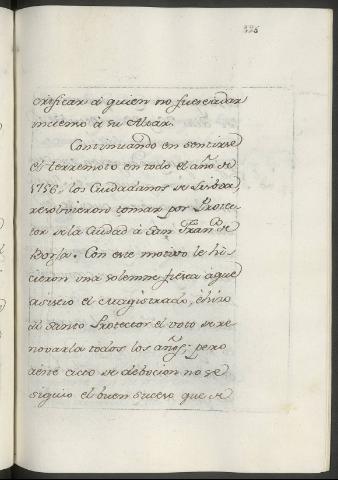 325
crificar á quien no fuese á dar
incienso á su Altar.
Continuando en sentirse
el terremoto en todo el año de
1756, los Ciudadanos de Lisboa,
resolvieron tomar por Protec-
tor de la Ciudad á San Fran.co de
Borja. Con este motivo le hi-
cieron una solemne fiesta a que
asistio el Magistrado, é hizo
al Santo Protector el voto de re-
novarla todos los años; pero
á este acto de debocion no se
siguio el buen suceso que se